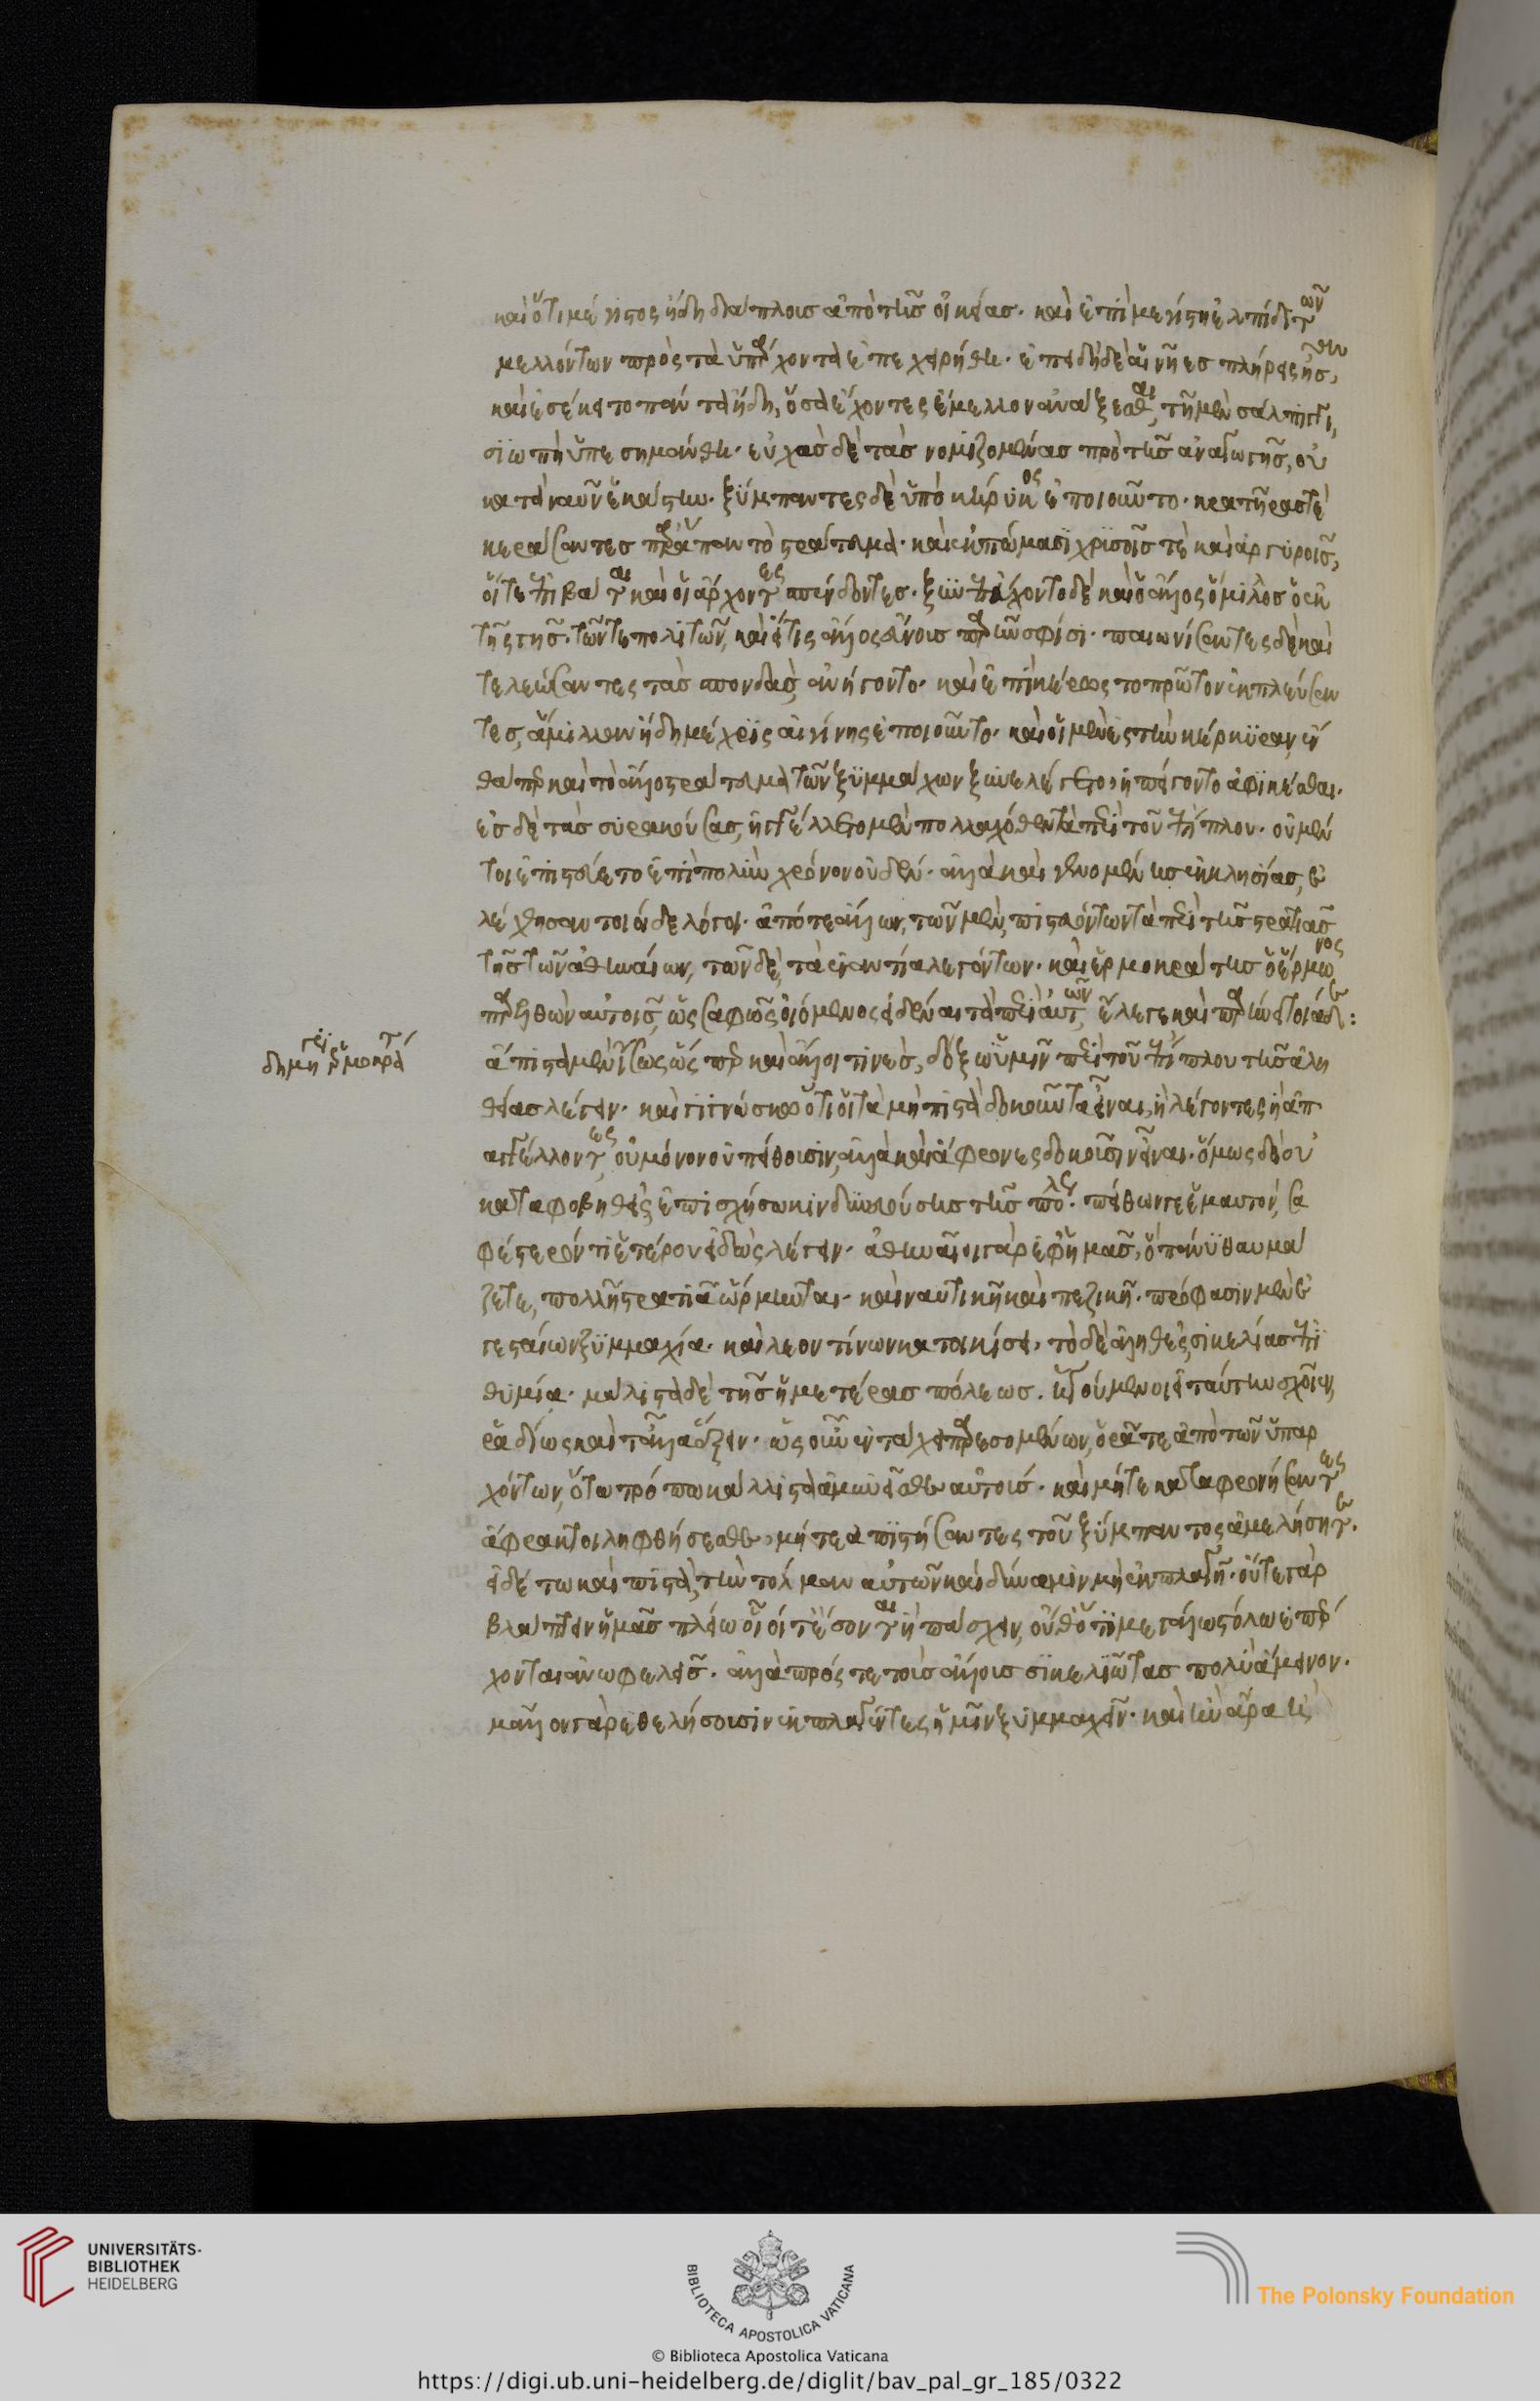 καὶ ὅτι μέγιστος ἤδη διάπλους ἀπὸ τῆς οἰκείας. καὶ ἐπὶ μεγίστη ἐλπίδι τῶν
μελλόντων πρὸς τὰ ὑπάρχοντα ἐπεχειρήθη. ἐπειδὴ δὲ αἱ νῆες πλήρεις ἦσαν,
καὶ ἐσέκειτο πάντα ἤδη, ὅσα ἔχοντες ἔμελλον ἀνάξεσθαι, τῇ μὲν σάλπιγγι,
σιωπὴ ὑπεσημάνθη. εὐχὰς δὲ τὰς νομιζομένας πρὸ τῆς ἀναγωγῆς, οὐ
κατὰ ναῦν ἑκάστην. ξύμπαντες δὲ ὑπὸ κήρυκος ἐποιοῦντο. κρατῆρας τὲ
κεράσαντες παρ' ἅπαν τὸ στράτευμα. καὶ ἐκπώμασι χρυσοῖς τὲ καὶ ἀργύροις,
οἵ τε ἐπιβάται καὶ οἱ ἄρχοντες σπένδοντες. ξυνεπεύχοντο δὲ καὶ ὁ ἄλλος ὅμιλος ὁ ἐκ
τῆς γῆς. τῶν τε πολιτῶν, καὶ εἴ τις ἄλλος εὔνους παρῆν σφίσι. παιωνίσαντες δὲ καὶ
τελεώσαντες τὰς σπονδὰς, ἀνήγοντο. καὶ ἐπὶ κέρως τὸ πρῶτον ἐκπλεύσαν
τες, ἅμιλλαν ἤδη μέχρις αἰγίνης ἐποιοῦντο. καὶ οἱ μὲν ἐς τὴν κέρκυραν, ἔν
θαπερ καὶ τὸ ἄλλο στράτευμα τῶν ξυμμάχων ξυνελέγετο, ἠπείγοντο ἀφικέσθαι.
ἐς δὲ τὰς συρακούσας, ἠγγέλλετο μὲν πολλαχόθεν τὰ περὶ τοῦ ἐπίπλου. οὐ μέν
τοι ἐπιστεύετο ἐπὶ πολὺν χρόνον οὐδέν. ἀλλὰ καὶ γενομένης ἐκκλησίας, ἐ
λέχθησαν τοιοίδε λόγοι. ἀπό τε ἄλλων, τῶν μὲν, πιστευόντων τὰ περὶ τῆς στρατιᾶς
τῆς τῶν ἀθηναίων, τῶν δὲ, τὰ ἐναντία λεγόντων. καὶ ἑρμοκράτης ὁ ἕρμωνος
παρελθὼν αὐτοῖς, ὡς σαφῶς οἰόμενος εἰδέναι τὰ περὶ αὐτῶν, ἔλεγε καὶ παρῄνει τοιάδε:
δημηγορί ἑρμοκράτ
ἄπιστα μὲν ἴσως ὥσπερ καὶ ἄλλοι τινὲς, δόξω ὑμῖν περὶ τοῦ ἐπίπλου τῆς ἀλη
θείας λέγειν. καὶ γιγνώσκω ὅτι οἱ τὰ μὴ πιστὰ δοκοῦντα εἶναι, ἢ λέγοντες ἢ ἀπ
αγγέλλοντες, οὐ μόνον οὐ πείθουσιν, ἀλλὰ καὶ ἄφρονες δοκοῦσιν εἶναι. ὅμως δὲ οὐ
καταφοβηθεὶς ἐπισχήσω κινδυνευούσης τῆς πόλεως. πείθων γε ἐμαυτόν, σα
φέστερόν τι ἑτέρου εἰδὼς λέγειν. ἀθηναῖοι γὰρ ἐφ' ἡμᾶς, ὃ πάνυ θαυμά
ζετε, πολλῇ στρατιᾷ ὥρμηνται. καὶ ναυτικῇ καὶ πεζικῇ. πρόφασιν μὲν ἐ
γεσταίων ξυμμαχία. καὶ λεοντίνων κατοικίσει, τὸ δὲ ἀληθὲς, σικελίας ἐπι
θυμία. μάλιστα δὲ τῆς ἡμετέρας πόλεως. ἡγούμενοι εἰ ταύτην σχοῖεν,
ῥαδίως καὶ τἆλλα ἕξειν. ὡς οὖν ἐν τάχει παρεσομένων, ὁρᾶτε ἀπὸ τῶν ὑπαρ
χόντων, ὅτῳ τρόπῳ κάλλιστα ἀμυνεῖσθε αὐτούς. καὶ μήτε καταφρονήσαντες
ἄφρακτοι ληφθήσεσθε, μήτε ἀπιστήσαντες τοῦ ξύμπαντος ἀμελήσητε.
εἰ δέ τῳ καὶ πιστὰ, τὴν τόλμαν αὐτῶν καὶ δύναμιν μὴ ἐκπλαγῇ. οὔτε γὰρ
βλάπτειν ἡμᾶς πλείω οἷοί τέ ἔσονται ἢ πάσχειν, οὔθ' ὅτι μεγάλω στόλω ἐπέρ
χονται ἀνωφελεῖς. ἀλλὰ πρός τε τοὺς ἄλλους σικελιώτας πολὺ ἄμεινον.
μᾶλλον γὰρ ἐθελήσουσιν ἐκπλαγέντες ἡμῖν ξυμμαχεῖν. καὶ ἢν ἄρα ἢ
UNIVERSITÄTS-
BIBLIOTHEK
HEIDELBERG
BIBLIOTECA APOSTOLICA VATICANA
The Polonsky Foundation
© Biblioteca Apostolica Vaticana
https://digi.ub.uni-heidelberg.de/diglit/bav_pal_gr_185/0322